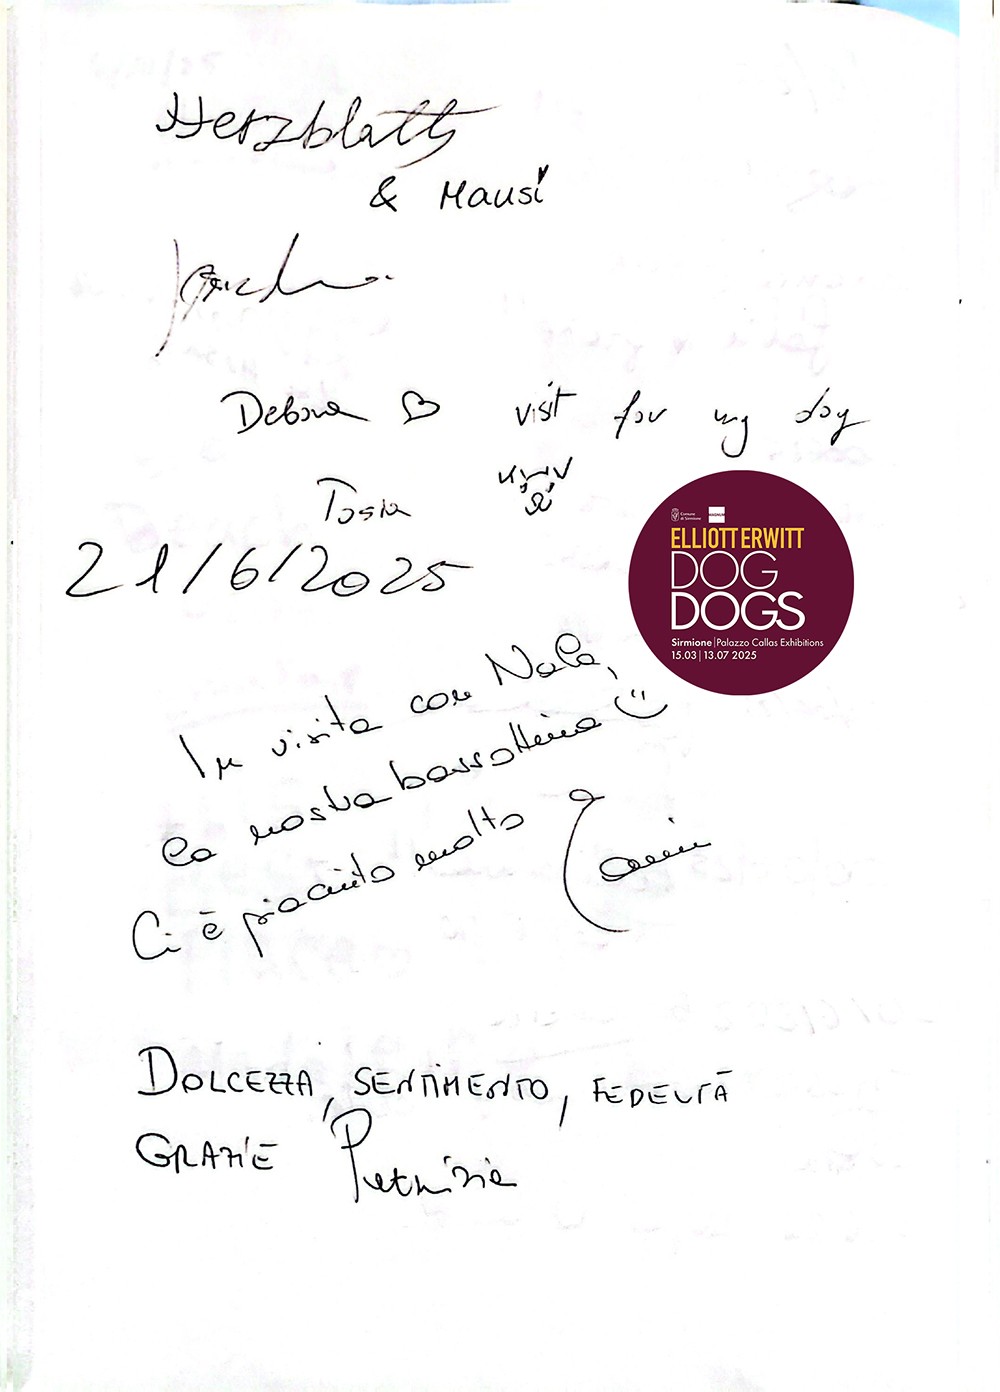 Herzblatt
& Mausi
Debora visit for my dog
Tosia
21/6/2025
Comune
di Sirmione
MAGNUM
ELLIOTT ERWITT
DOG
DOGS
Sirmione | Palazzo Callas Exhibitions
15.03 | 13.07 2025
In visita con Nala,
la nostra bassottina :)
Ci è piaciuto molto
DOLCEZZA, SENTIMENTO, FEDELTÀ
GRAZIE Patrizia